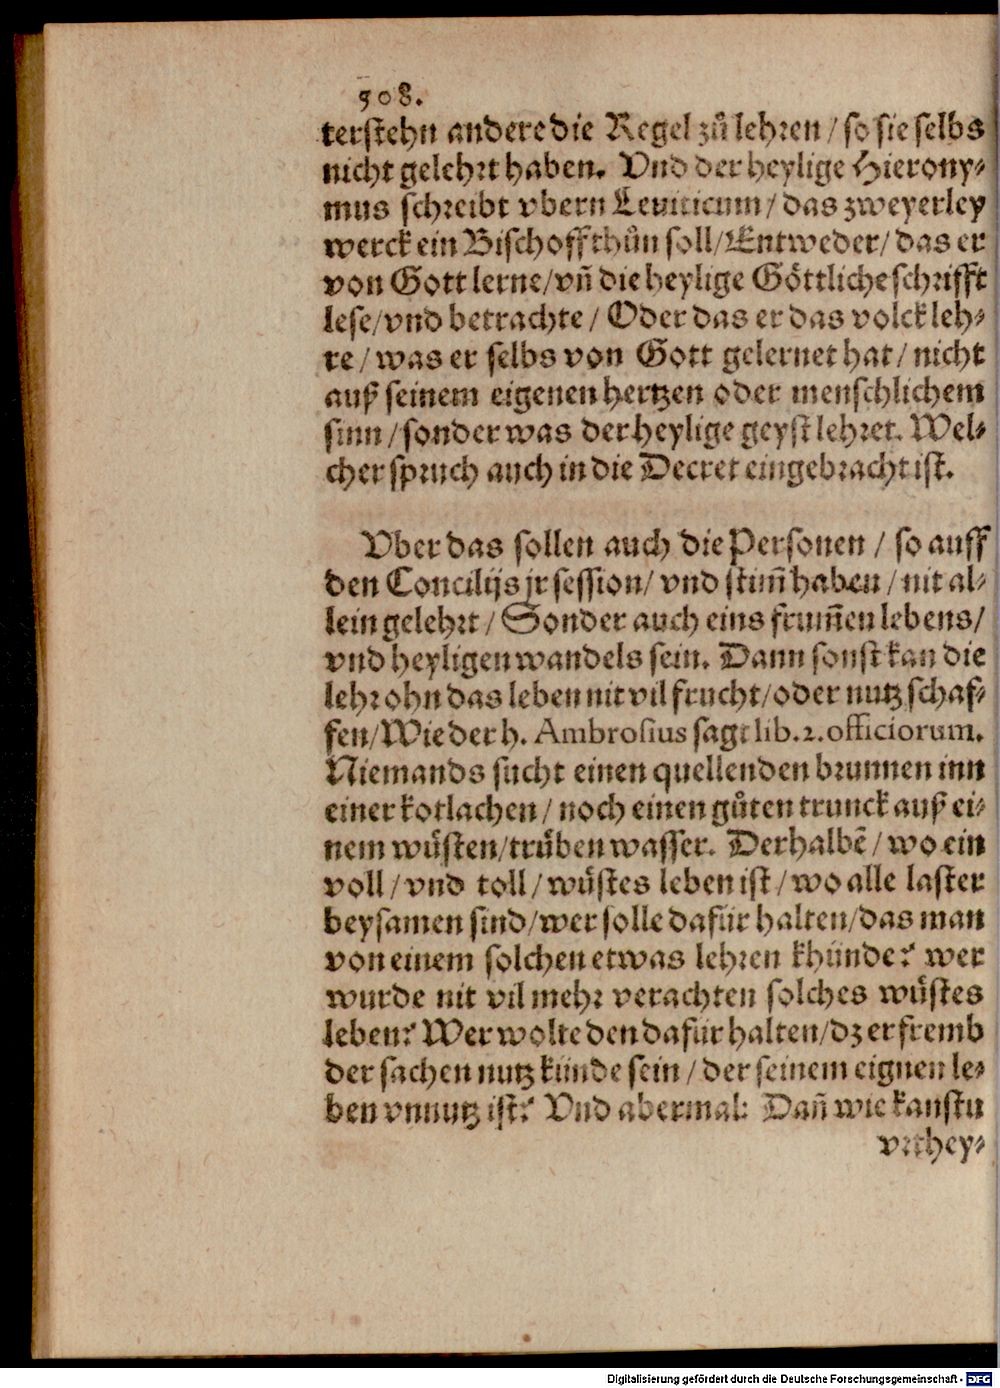 508.
terstehn andere die Regel zů lehren / so sie selbs
nicht gelehrt haben. Vnd der heylige Hierony⸗
mus schreibt vbern Leuiticum / das zweyerley
werck ein Bischoff thůn soll / Entweder / das er
von Gott lerne / vñ die heylige Göttliche schrifft
lese / vnd betrachte / Oder das er das volck leh⸗
re / was er selbs von Gott gelernet hat / nicht
auß seinem eigenen hertzen oder menschlichem
sinn / sonder was der heylige geyst lehret. Wel⸗
cher spruch auch in die Decret eingebracht ist.
Vber das sollen auch die Personen / so auff
den Concilijs jr session / vnd stim̃ haben / nit al⸗
lein gelehrt / Sonder auch eins frum̃en lebens /
vnd heyligen wandels sein. Dann sonst kan die
lehr ohn das leben nit vil frucht / oder nutz schaf⸗
fen / Wie der h. Ambrosius sagt lib. 2. officiorum.
Niemands sucht einen quellenden brunnen inn
einer kotlachen / noch einen gůten trunck auß ei⸗
nem wůsten / trůben wasser. Derhalbẽ / wo ein
voll / vnd toll / wůstes leben ist / wo alle laster
beysamen sind / wer solle dafür halten / das man
von einem solchen etwas lehren khünde? wer
wurde nit vil mehr verachten solches wůstes
leben? Wer wolte den dafür halten / dz er fremb
der sachen nutz künde sein / der seinem eignen le⸗
ben vnnutz ist? Vnd abermal: Dañ wie kanstu
vrthey⸗
Digitalisierung gefördert durch die Deutsche Forschungsgemeinschaft - DFG